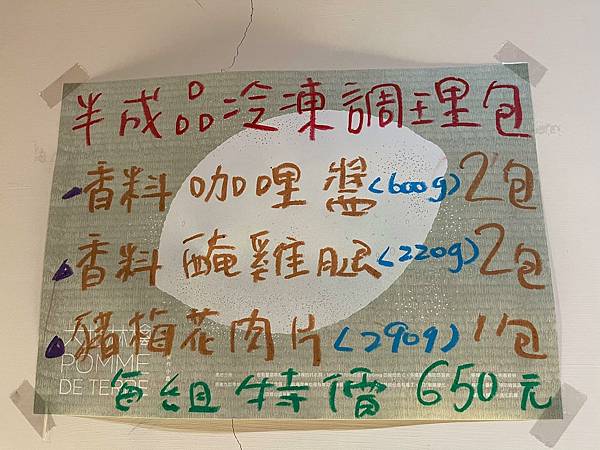 半成品冷凍調理包
香料咖哩醬(600g)2包
香料醃雞腿(220g)2包
豬梅花肉片(290g)1包
POMME
DE TERRE
每組特價650元